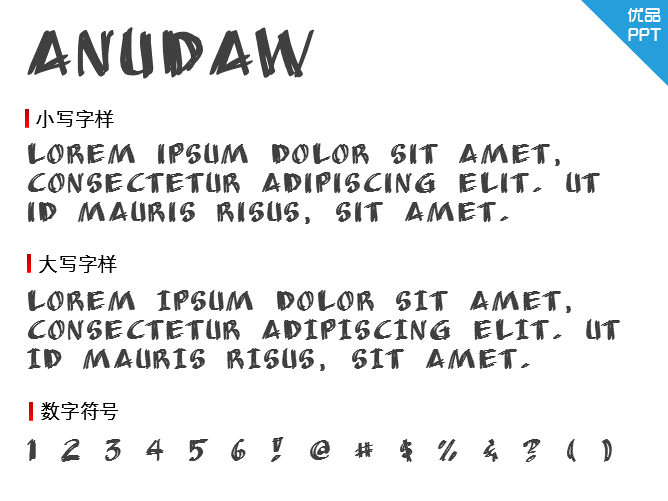 优品
PPT
ANUDAW
小写字样
LOREM IPSUM DOLOR SIT AMET,
CONSECTETUR ADIPISCING ELIT. UT
ID MAURIS RISUS, SIT AMET.
大写字样
LOREM IPSUM DOLOR SIT AMET,
CONSECTETUR ADIPISCING ELIT. UT
ID MAURIS RISUS, SIT AMET.
数字符号
1 2 3 4 5 6 ! @ # $ % & ? ( )